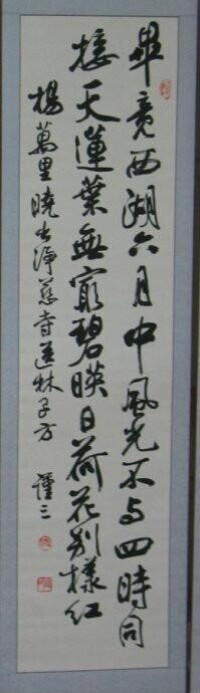 畢竟西湖六月中風光不与四時同
接天蓮葉無窮碧暎日荷花別樣紅
楊萬里曉出淨慈寺送林子方 謹三